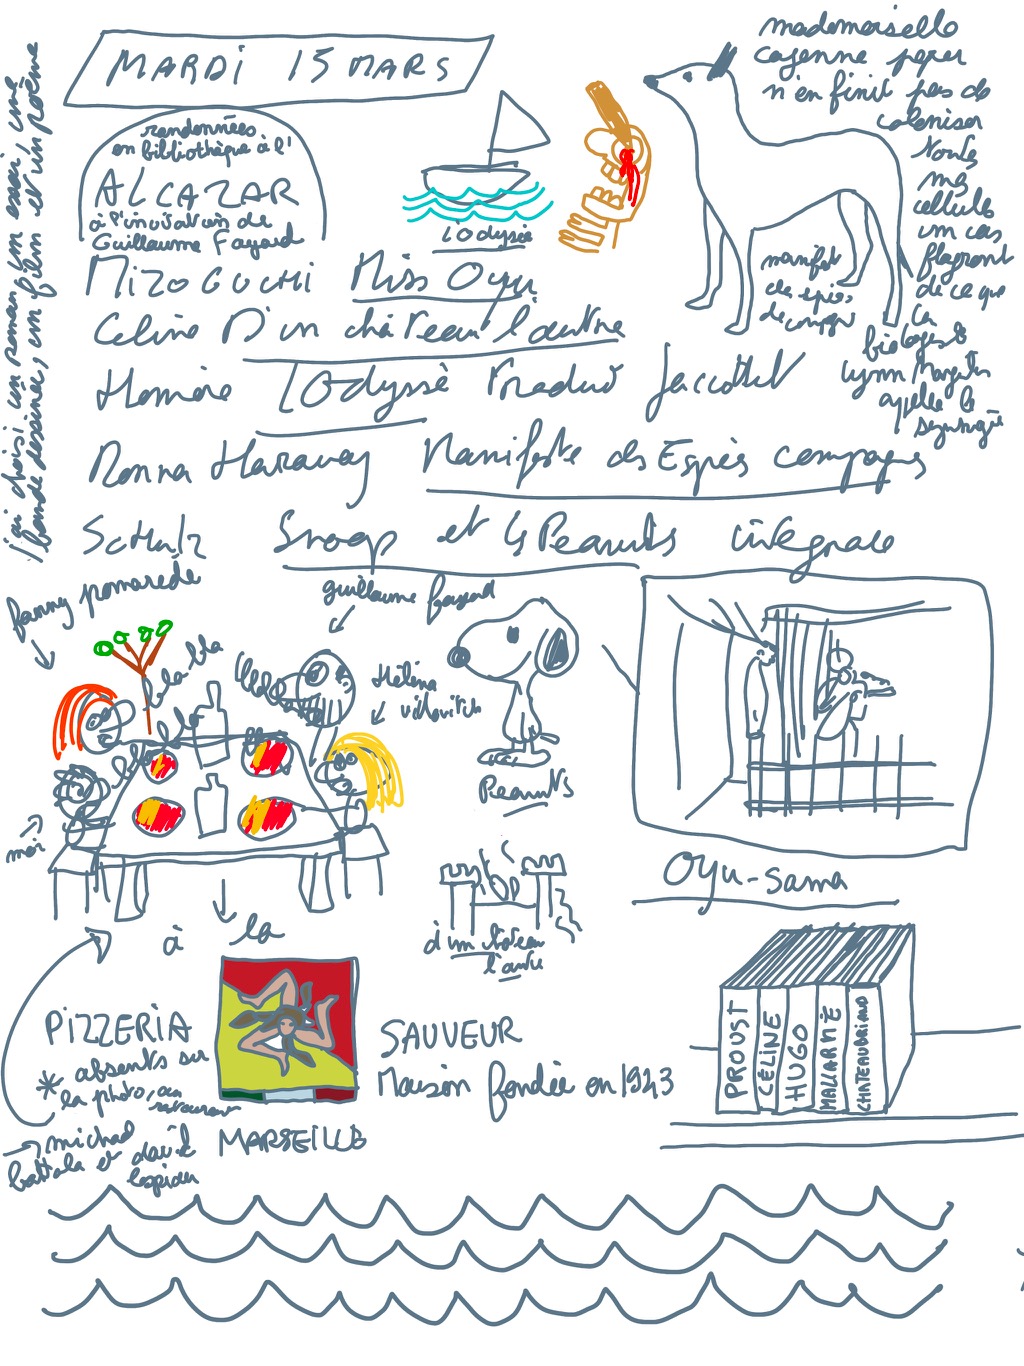 MARDI 15 MARS
randonnées
en bibliothèque à l'
ALCAZAR
à l'invitation de
Guillaume Fayard
j'ai choisi un roman, un essai, une
bande dessinée, un film et un poème
l'Odyssée
mademoiselle
cayenne peper
n'en finit pas de
coloniser
toutes
mes
cellules
un cas
flagrant
de ce que
la
biologiste
Lynn Margulis
appelle la
manifest
des espè.
de compagn
MIZOGUCHI Miss Oyu
Celine D'un château l'autre
Homère l'Odyssé traduit Jaccottet
Donna Haraway Manifeste des Espèces compagnes
SCHULZ Snoopy et les Peanuts intégrale
fanny pomarède
guillaume fayard
Hélèna
villovitch
bla bla
bla bla
bla bla
moi
Peanuts
d'un château
l'autre
Oyu-sama
PROUST
CÉLINE
HUGO
MALLARMÉ
CHATEAUBRIAND
à la
PIZZERIA
SAUVEUR
Maison fondée en 1943
MARSEILLE
* absents sur
la photo, au
restaurant
→ michael
battala et david
lespiau